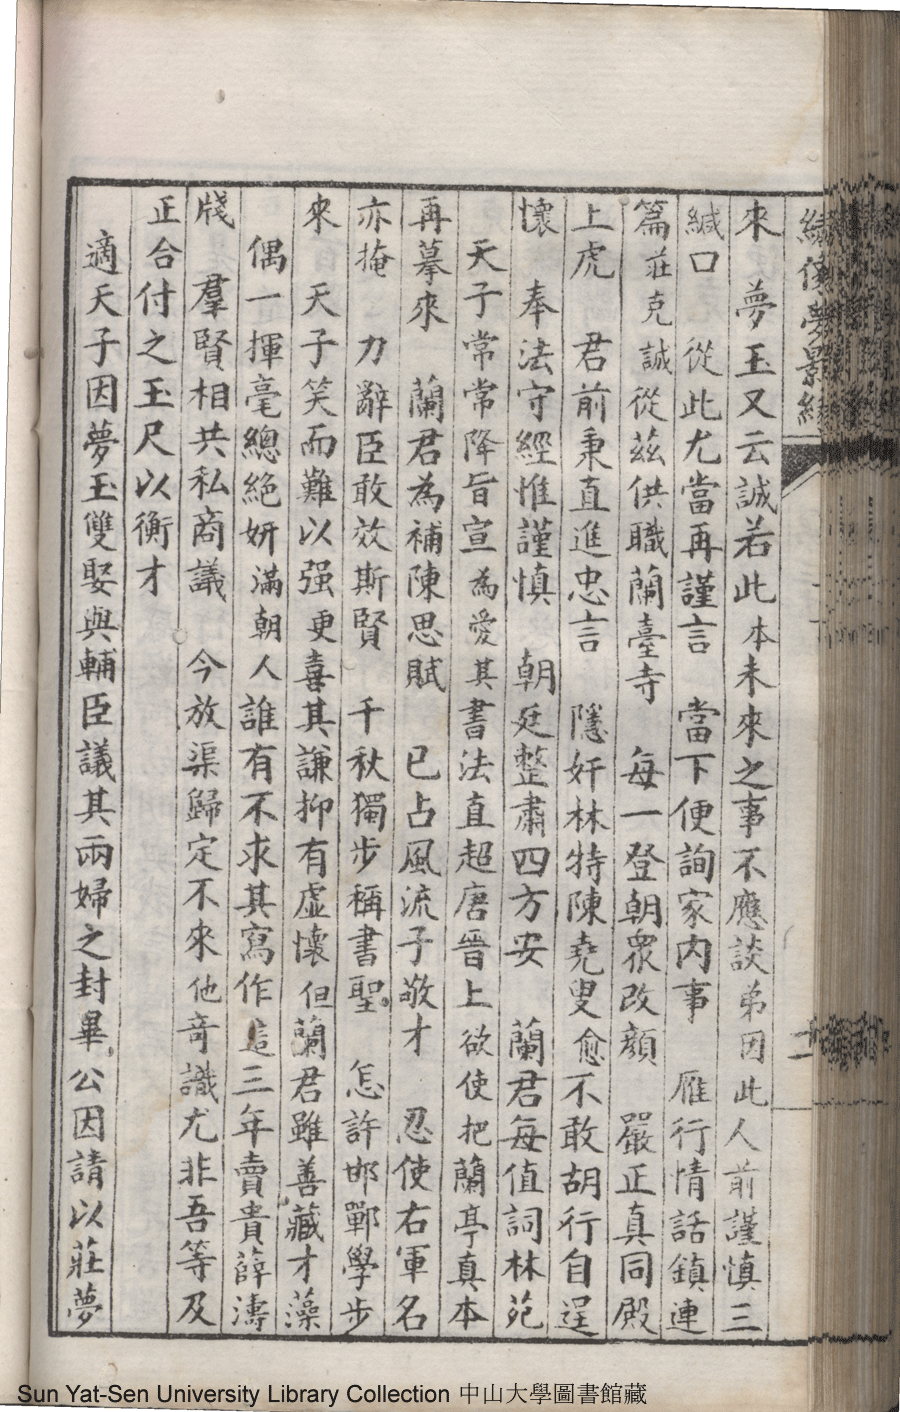 來　夢玉又云誠若此本未來之事不應談弟因此人前謹慎三
緘口　從此尤當再謹言　當下便詢家內事　雁行情話鎮連
篇莊克誠從茲供職蘭臺寺　每一登朝衆改顏　嚴正真同殿
上虎　君前秉直進忠言　隱奸林特陳堯叟愈不敢胡行自逞
懷　奉法守經惟謹慎　朝廷整肅四方安　蘭君每值詞林苑
天子常常降旨宣為愛其書法直超唐晉上欲使把蘭亭真本
再摹來　蘭君為補陳思賦　已占風流子敬才　忍使右軍名
亦掩　力辭臣敢效斯賢　千秋獨步稱書聖　怎許邯鄲學步
來　天子笑而難以强更喜其謙抑有虛懷但蘭君雖善藏才藻
偶一揮毫總絕妍滿朝人誰有不求其寫作這三年賣貴薛濤
牋　羣賢相共私商議　今放渠歸定不來他奇識尤非吾等及
正合付之玉尺以衡才
適天子因夢玉雙娶與輔臣議其兩婦之封畢公因請以莊夢
Sun Yat-Sen University Library Collection 中山大學圖書館藏